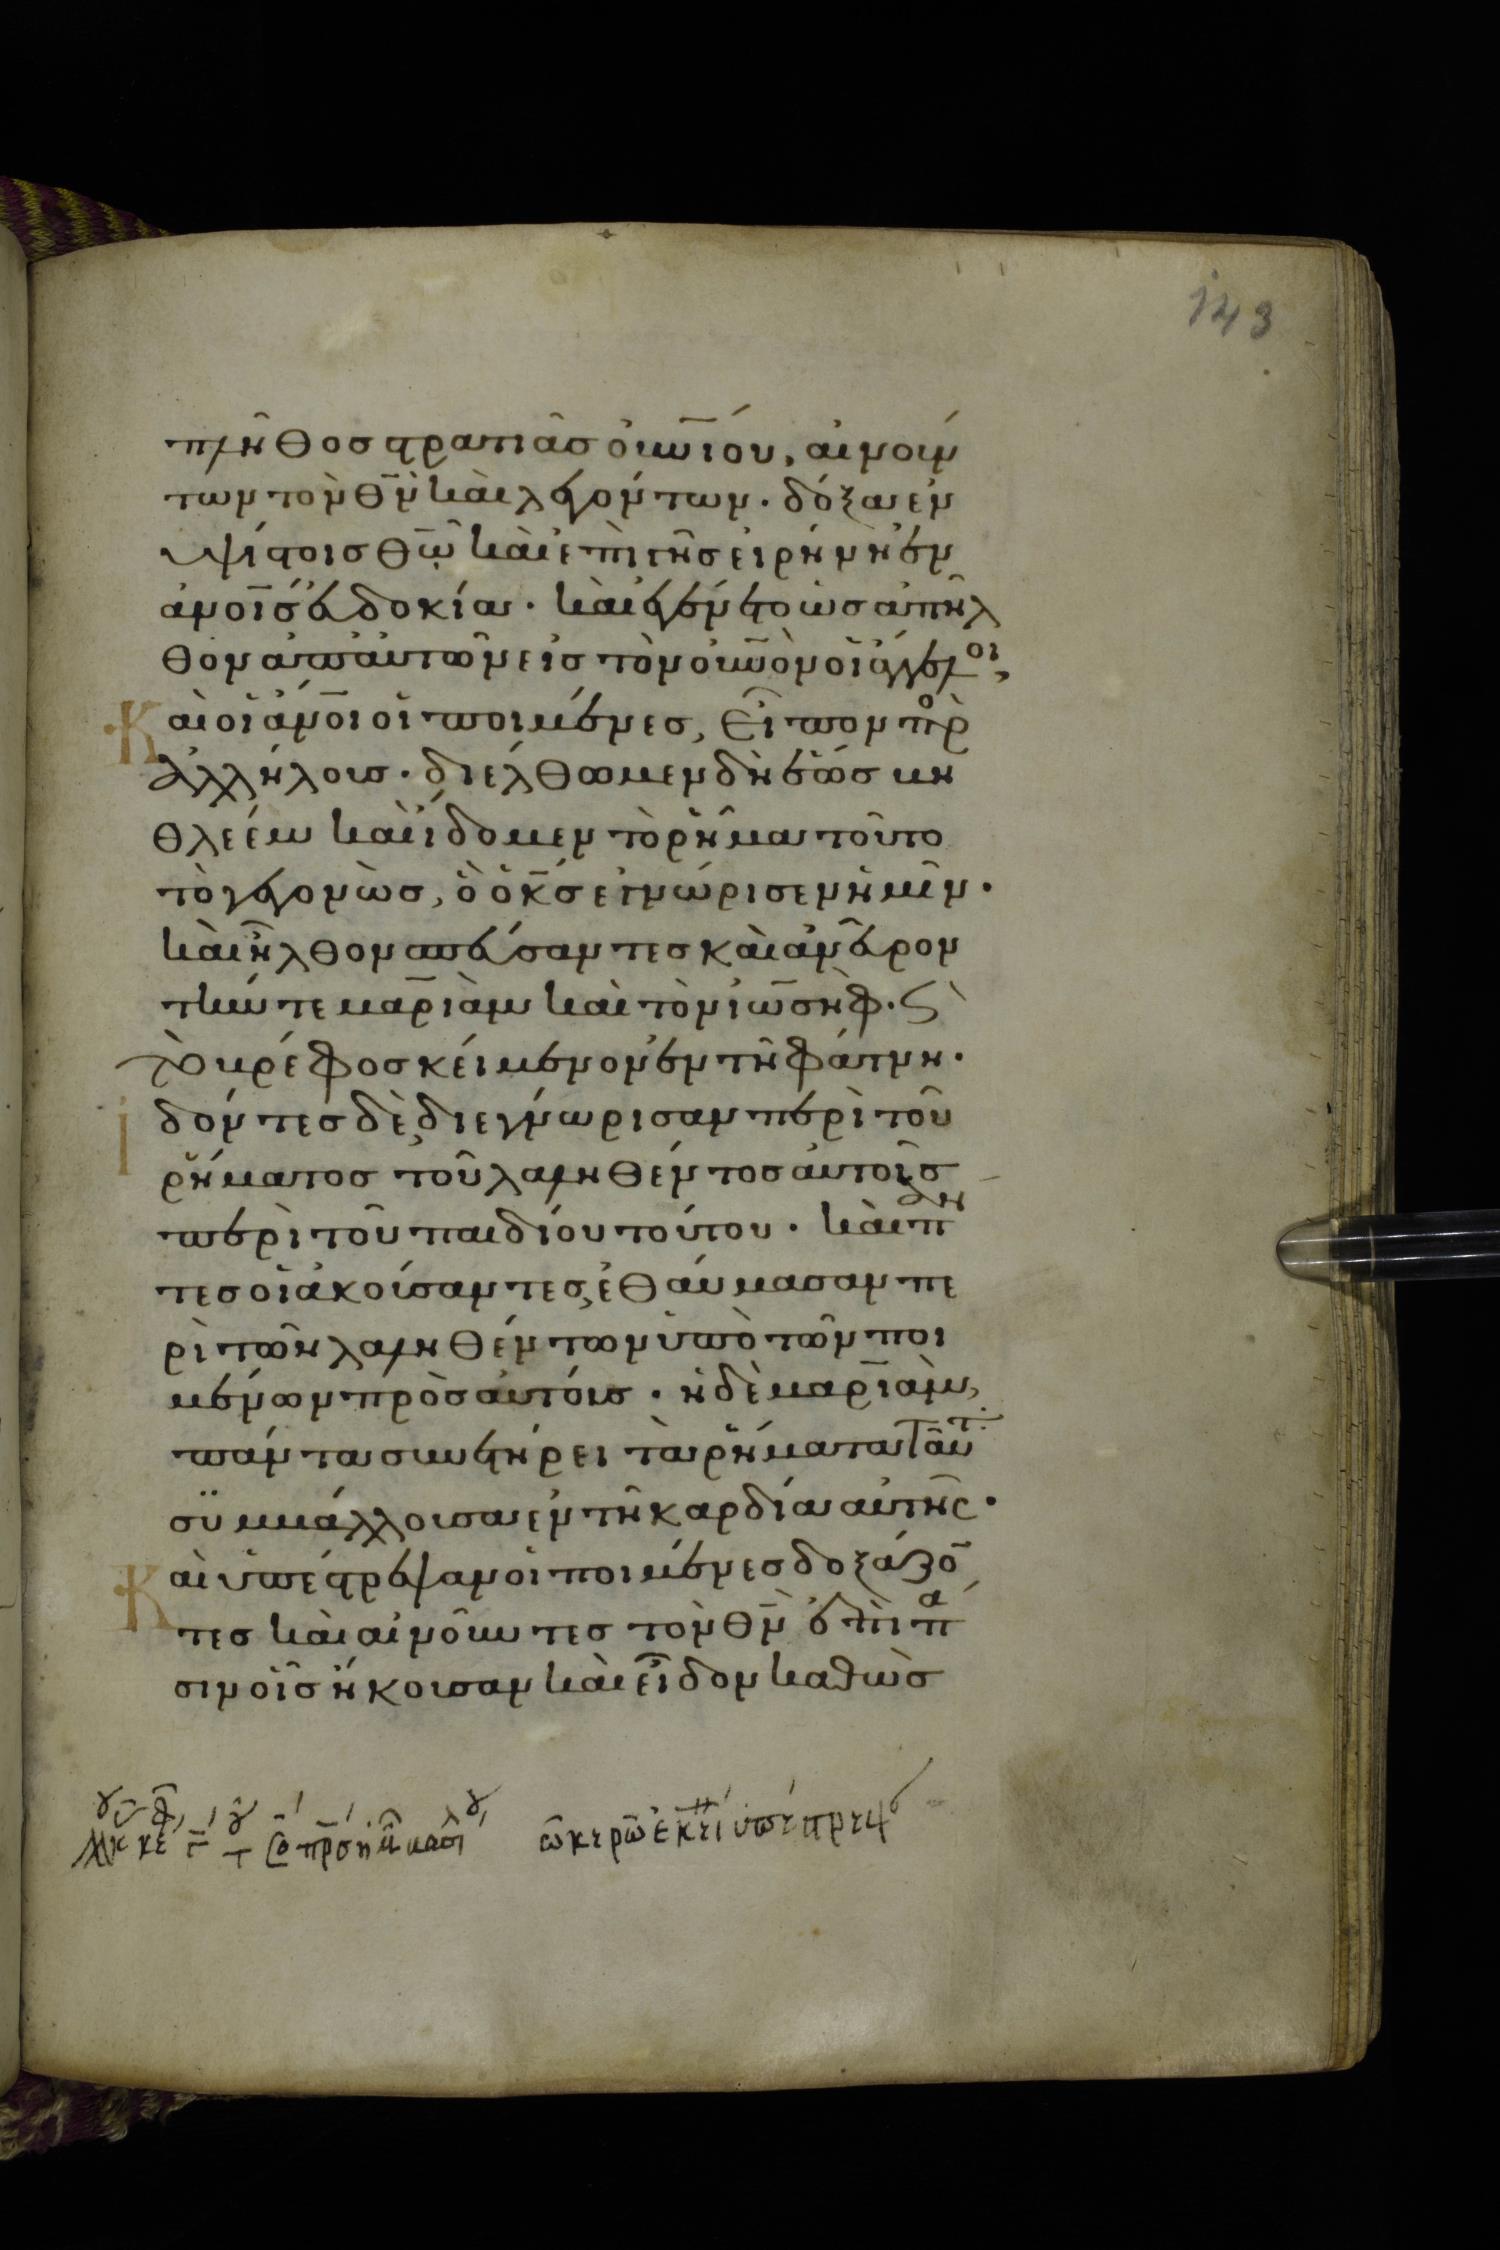 143
πλῆθος στρατιᾶς οὐνίου, αἰνούν
των τὸν θν̄ καὶ λεγόντων· δόξα ἐν
ὑψίστοις θω̄ καὶ ἐπὶ γῆς εἰρήνη ἐν
ἀνοις εὐδοκία· καὶ ἐγένετο ὡς ἀπῆλ
θον ἀπ' αὐτῶν εἰς τὸν οὐνὸν οἱ ἄγγελοι,
Καὶ οἱ ἄνοι οἱ ποιμένες, εἶπον πρὸ
ἀλλήλους· διέλθωμεν δὴ ἕως βη
θλεέμ καὶ ἴδομεν τὸ ῥῆμα τοῦτο
τὸ γεγονὼς, ὃ ὁ κς̄ ἐγνώρισεν ἡμῖν·
καὶ ἦλθον σπεύσαντες καὶ ἀνεῦρον
τήν τε μαριὰμ καὶ τὸν ἰωσὴφ· ϗ
τὸ βρέφος κείμενον ἐν τῆ φάτνη·
ἰδόντες δὲ διεγνώρισαν περὶ τοῦ
ῥήματος τοῦ λαληθέντος αὐτοῖς
περὶ τοῦ παιδίου τούτου· καὶ πάν
τες οἱ ἀκούσαντες, ἐθαύμασαν πε
ρὶ τῶν λαληθέντων ὑπὸ τῶν ποι
μένων πρὸς αὐτούς· ἡ δὲ μαριὰμ,
πάντα συνετήρει τὰ ῥήματα ταῦτ
συμβάλλουσα ἐν τῆ καρδία αὐτῆς·
Καὶ ὑπέστρεψαν οἱ ποιμένες δοξάζο
τες καὶ αἰνοῦντες τὸν θν̄ ἐπὶ πᾶ
σιν οἷς ἤκουσαν καὶ εἶδον καθὼς